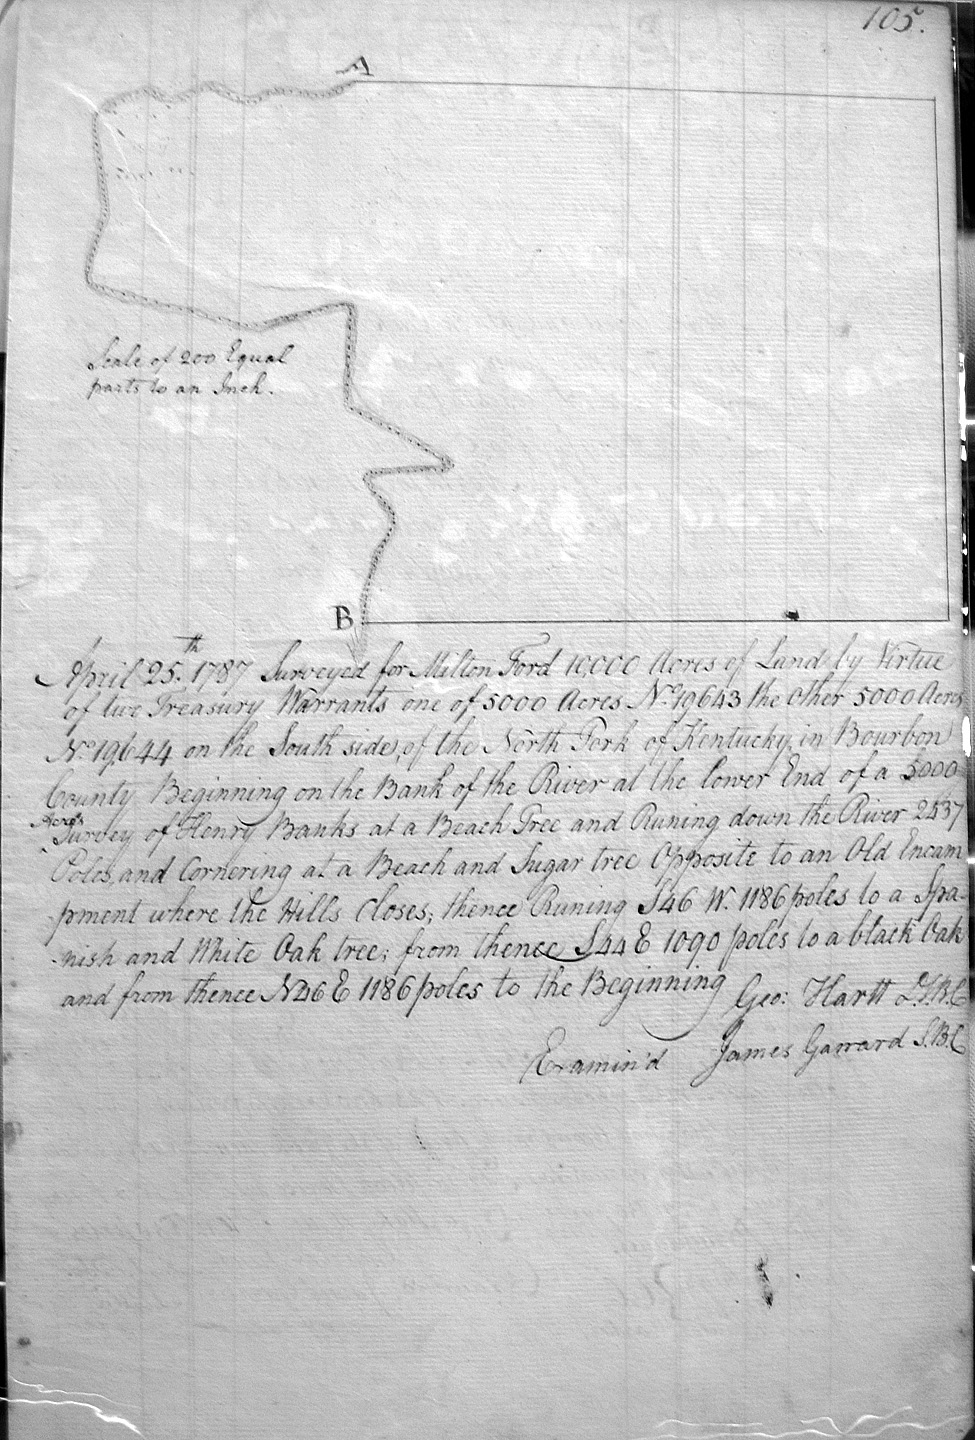 105.
A
Scale of 200 Equal
parts to an Inch.
B
April 25th 1787 Surveyed for Milton Ford 10,000 Acres of Land by Virtue
of two Treasury Warrants one of 5000 Acres No. 19643 the other 5000 Acres
No. 19644 on the South side, of the North Fork of Kentucky, in Bourbon
County Beginning on the Bank of the River at the lower End of a 5000
Acres
Survey of Henry Banks at a Beach Tree and Runing down the River 2437
Poles, and Cornering at a Beach and Sugar tree Opposite to an Old Encam
pment where the Hills Closes; thence Runing S46 W. 1186 poles to a Spa-
nish and White Oak tree; from thence S44 E 1090 poles to a black Oak
and from thence N46 E 1186 poles to the Beginning
Geo: Hartt D.S.B.C
Examin'd James Garrard S.B.C